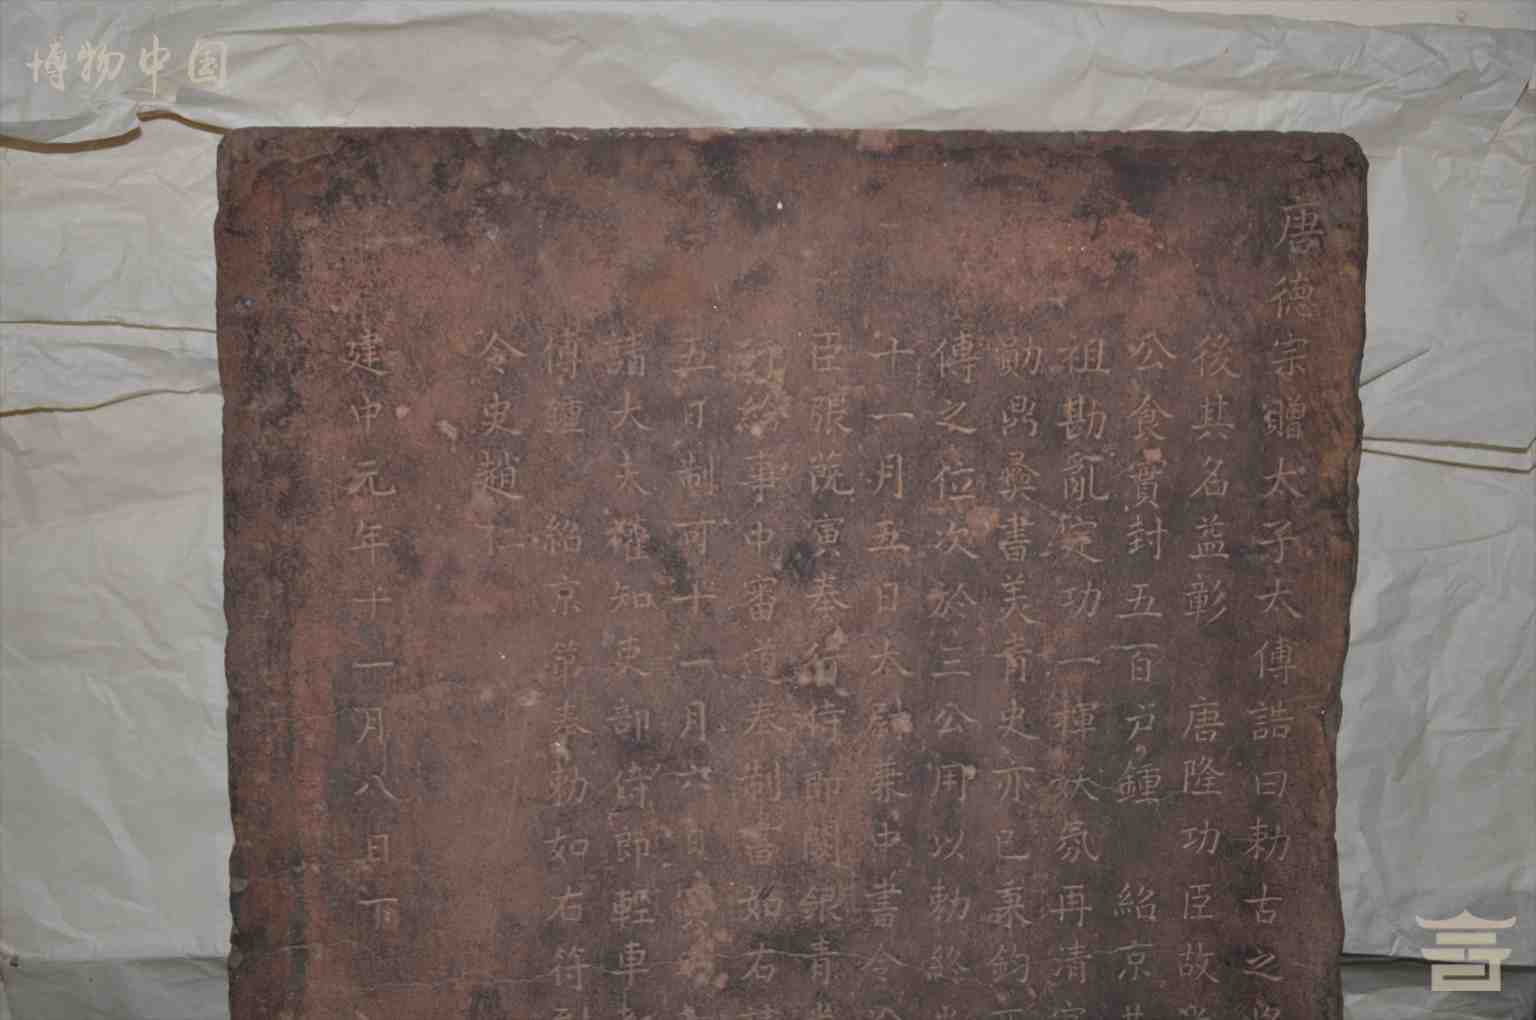 博物中国
唐德宗贈太子太傅誥曰勅古之
後其名益彰 唐隆功臣故
公食實封五百户鍾 紹京
祖勘亂定功一揮妖氛再清
勛鼎彝書美青史亦已秉鈞
傅之位次於三公用以勅終
十一月五日太尉兼中書令
臣張 寅奉行侍郎闕銀青
給事中審道奉制書如右
五日制可十一月六日
請大夫權知吏部侍郎輕車
傅鍾 紹京第奉勅如右符到
令史趙仁
建中元年十一月八日下